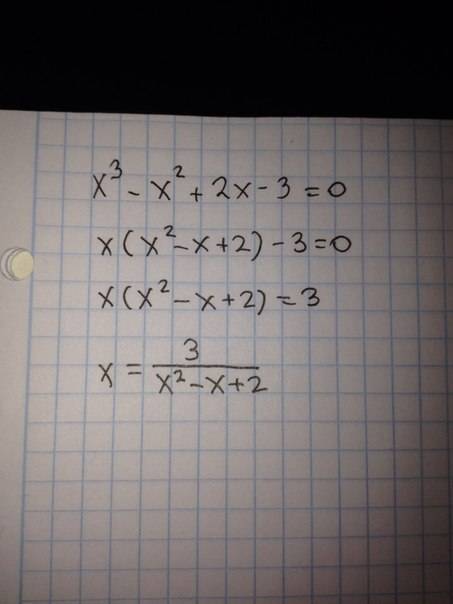 x³ - x² + 2x - 3 = 0
x(x² - x + 2) - 3 = 0
x(x² - x + 2) = 3
x = 3/(x² - x + 2)